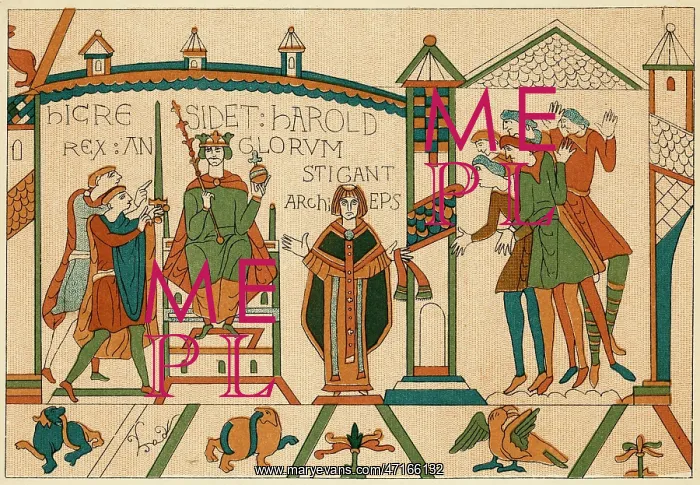 hIC RE SIDET : hAROLD
REX : AN GLORVM
STIGANT
ARChI EPS
ME
PL
ME
PL
www.maryevans.com/47166132